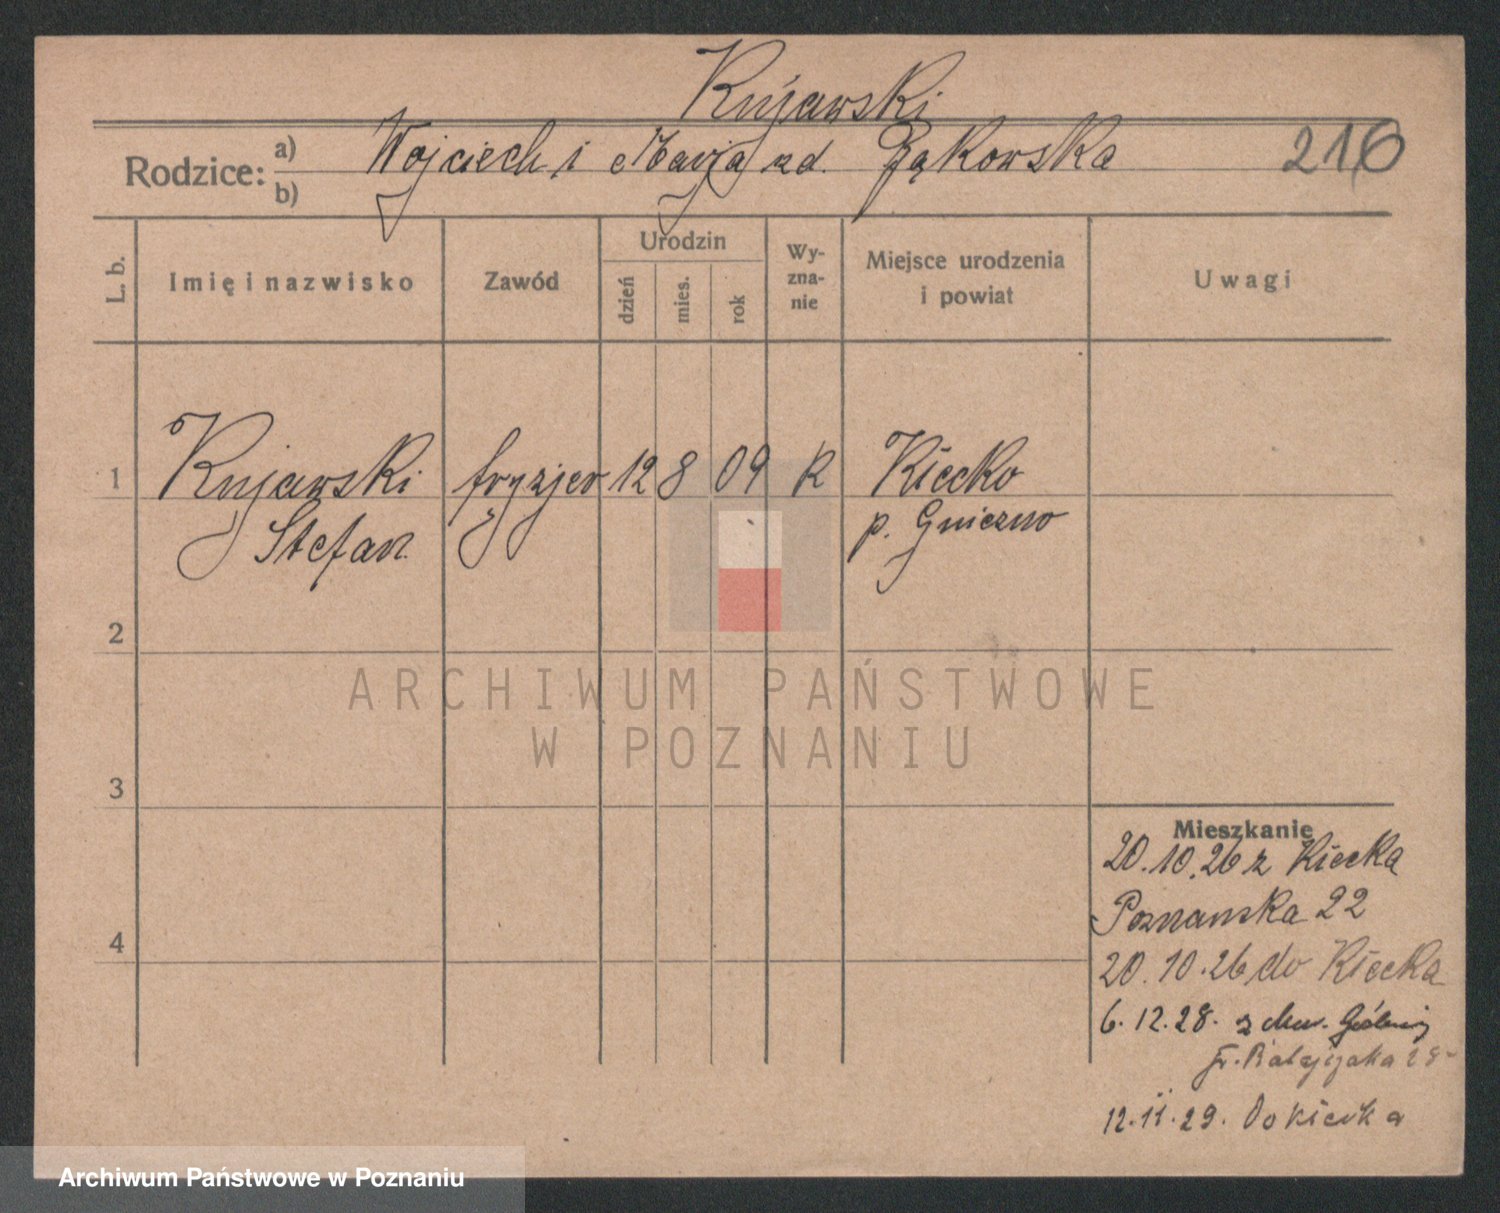 Kujawski
Rodzice: a) b) Wojciech i Marja zd. Bąkowska 216
L. b.
Imię i nazwisko
Zawód
Urodzin
dzień
mies.
rok
Wy-
zna-
nie
Miejsce urodzenia
i powiat
Uwagi
1 Kujawski fryzjer 12 8 09 R Kiecko
Stefan p. Gniezno
2
ARCHIWUM PAŃSTWOWE
W POZNANIU
3
Mieszkanie
20.10.26 z Kiecka
Poznanska 22
4
20.10.26 do Kiecka
6.12.28. z
Fr. Ratajczaka 28
12.11.29. Do Kiecka
Archiwum Państwowe w Poznaniu